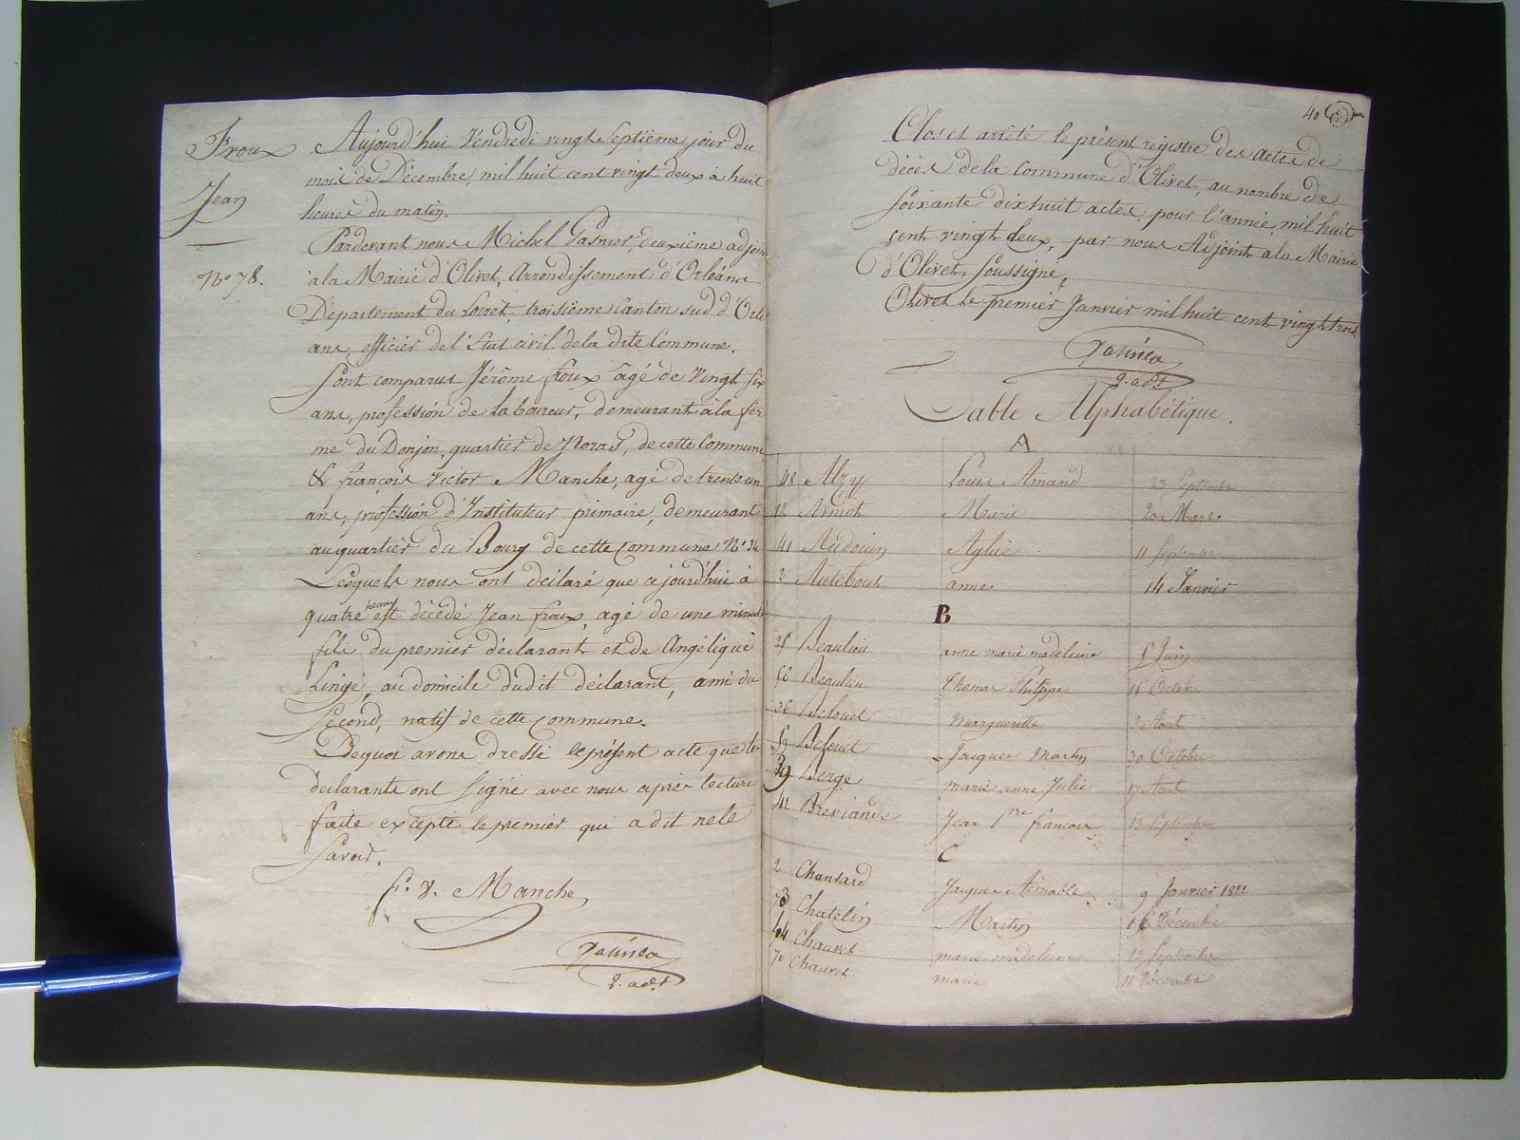 Froux
Jean
No 78.
Aujourd'hui Vendredi vingt Septième jour du
mois de Décembre, mil huit cent vingt deux à huit
heures du matin.
Pardevant nous Michel deuxième adjoint
à la Mairie d'Olivet, Arrondissement d'Orléans
Département du Loiret, troisième Canton sud d'Orlé
ans, officier de l'Etat civil de la dite Commune.
Sont comparus Jérôme froux âgé de Vingt six
ans, profession de laboureur, demeurant à la fer
me du Donjon, quartier de de cette Commune
& françois Victor Manche, agé de trente un
ans, profession d'Instituteur primaire, demeurant
au quartier du Bourg de cette Commune No 34
Lesquels nous ont déclaré que cejourd'hui à
quatre heures est décédé Jean froux, agé de une minute
fils du premier déclarant et de Angélique
Linge, au domicile dudit déclarant, ami du
Second, natif de cette Commune.
Dequoi avons dressé le présent acte que les
déclarants ont signé avec nous après lecture
faite excepté le premier qui a dit ne le
Savoir.
fs. V. Manche
2. adt
40
Clos et arrêté le présent registre des actes de
décès de la commune d'Olivet, au nombre de
soixante dix huit actes, pour l'année mil huit
cent vingt deux, par nous Adjoint à la Mairie
d'Olivet, Soussigné,
Olivet le premier Janvier mil huit cent vingt trois
2. adt
Table Alphabétique.
A
48 Louis Amand 23 Septembre
12 Marie 20 Mars
41 Audouin Aglaé 11 Septembre
3 anne 14 Janvier
B
Beaulieu anne marie madeleine Juin
Beaulieu thomas Philippe 16 Octobre
marguerite 2 Aout
Jacques Martin 30 Octobre
39 Berge marie anne Julie 17 Aout
Jean Pre francois 13 Septembre
C
2 Chansard Jacques Aimable 9 Janvier 1822
73 Chatelin Martin 16 Décembre
44 Chauvet marie madeleine 12 Septembre
70 Chauvet marie 11 Décembre